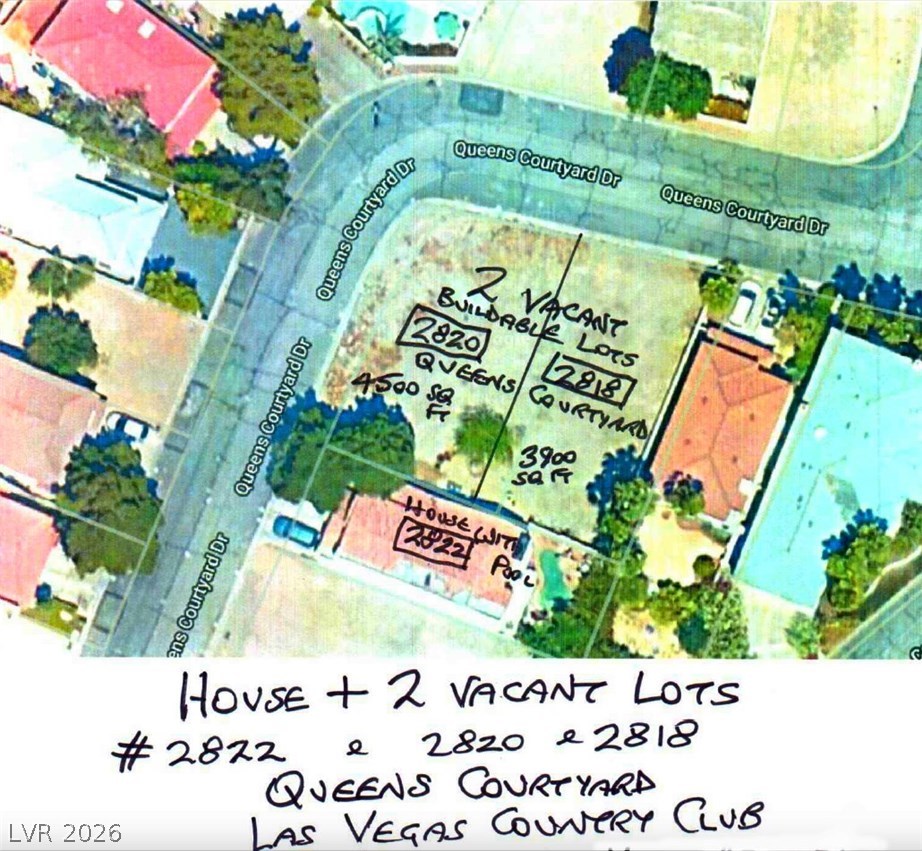 Queens Courtyard Dr
Queens Courtyard Dr
Queens Courtyard Dr
Queens Courtyard Dr
ens Courtyard Dr
2 VACANT
BUILDABLE LOTS
2820
QUEENS
4500 SQ
FT
2818
COURTYARD
3900
SQ FT
HOUSE WITH
2822
POOL
HOUSE + 2 VACANT LOTS
# 2822 & 2820 & 2818
QUEENS COURTYARD
LAS VEGAS COUNTRY CLUB
LVR 2026